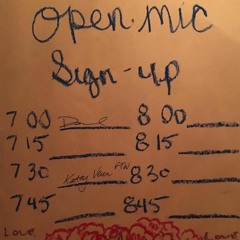 Open Mic
Sign-up
7 00 8 00
7 15 8 15
7 30 FTW 8 30
7 45 8 45
Love Love